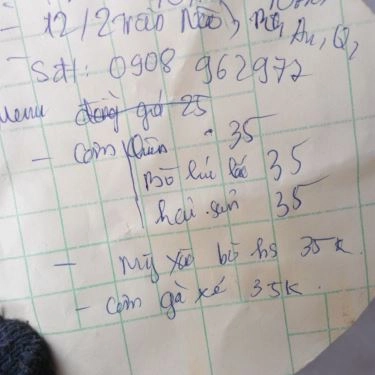 - 12/2 Trần Não, P. An, Q2
Sđt: 0908 962972
Menu đồng giá 25
- Cơm chiên 35
Bò lúc lắc 35
hải sản 35
- Mỳ xào bò hs 35k.
- Cơm gà xé 35k.